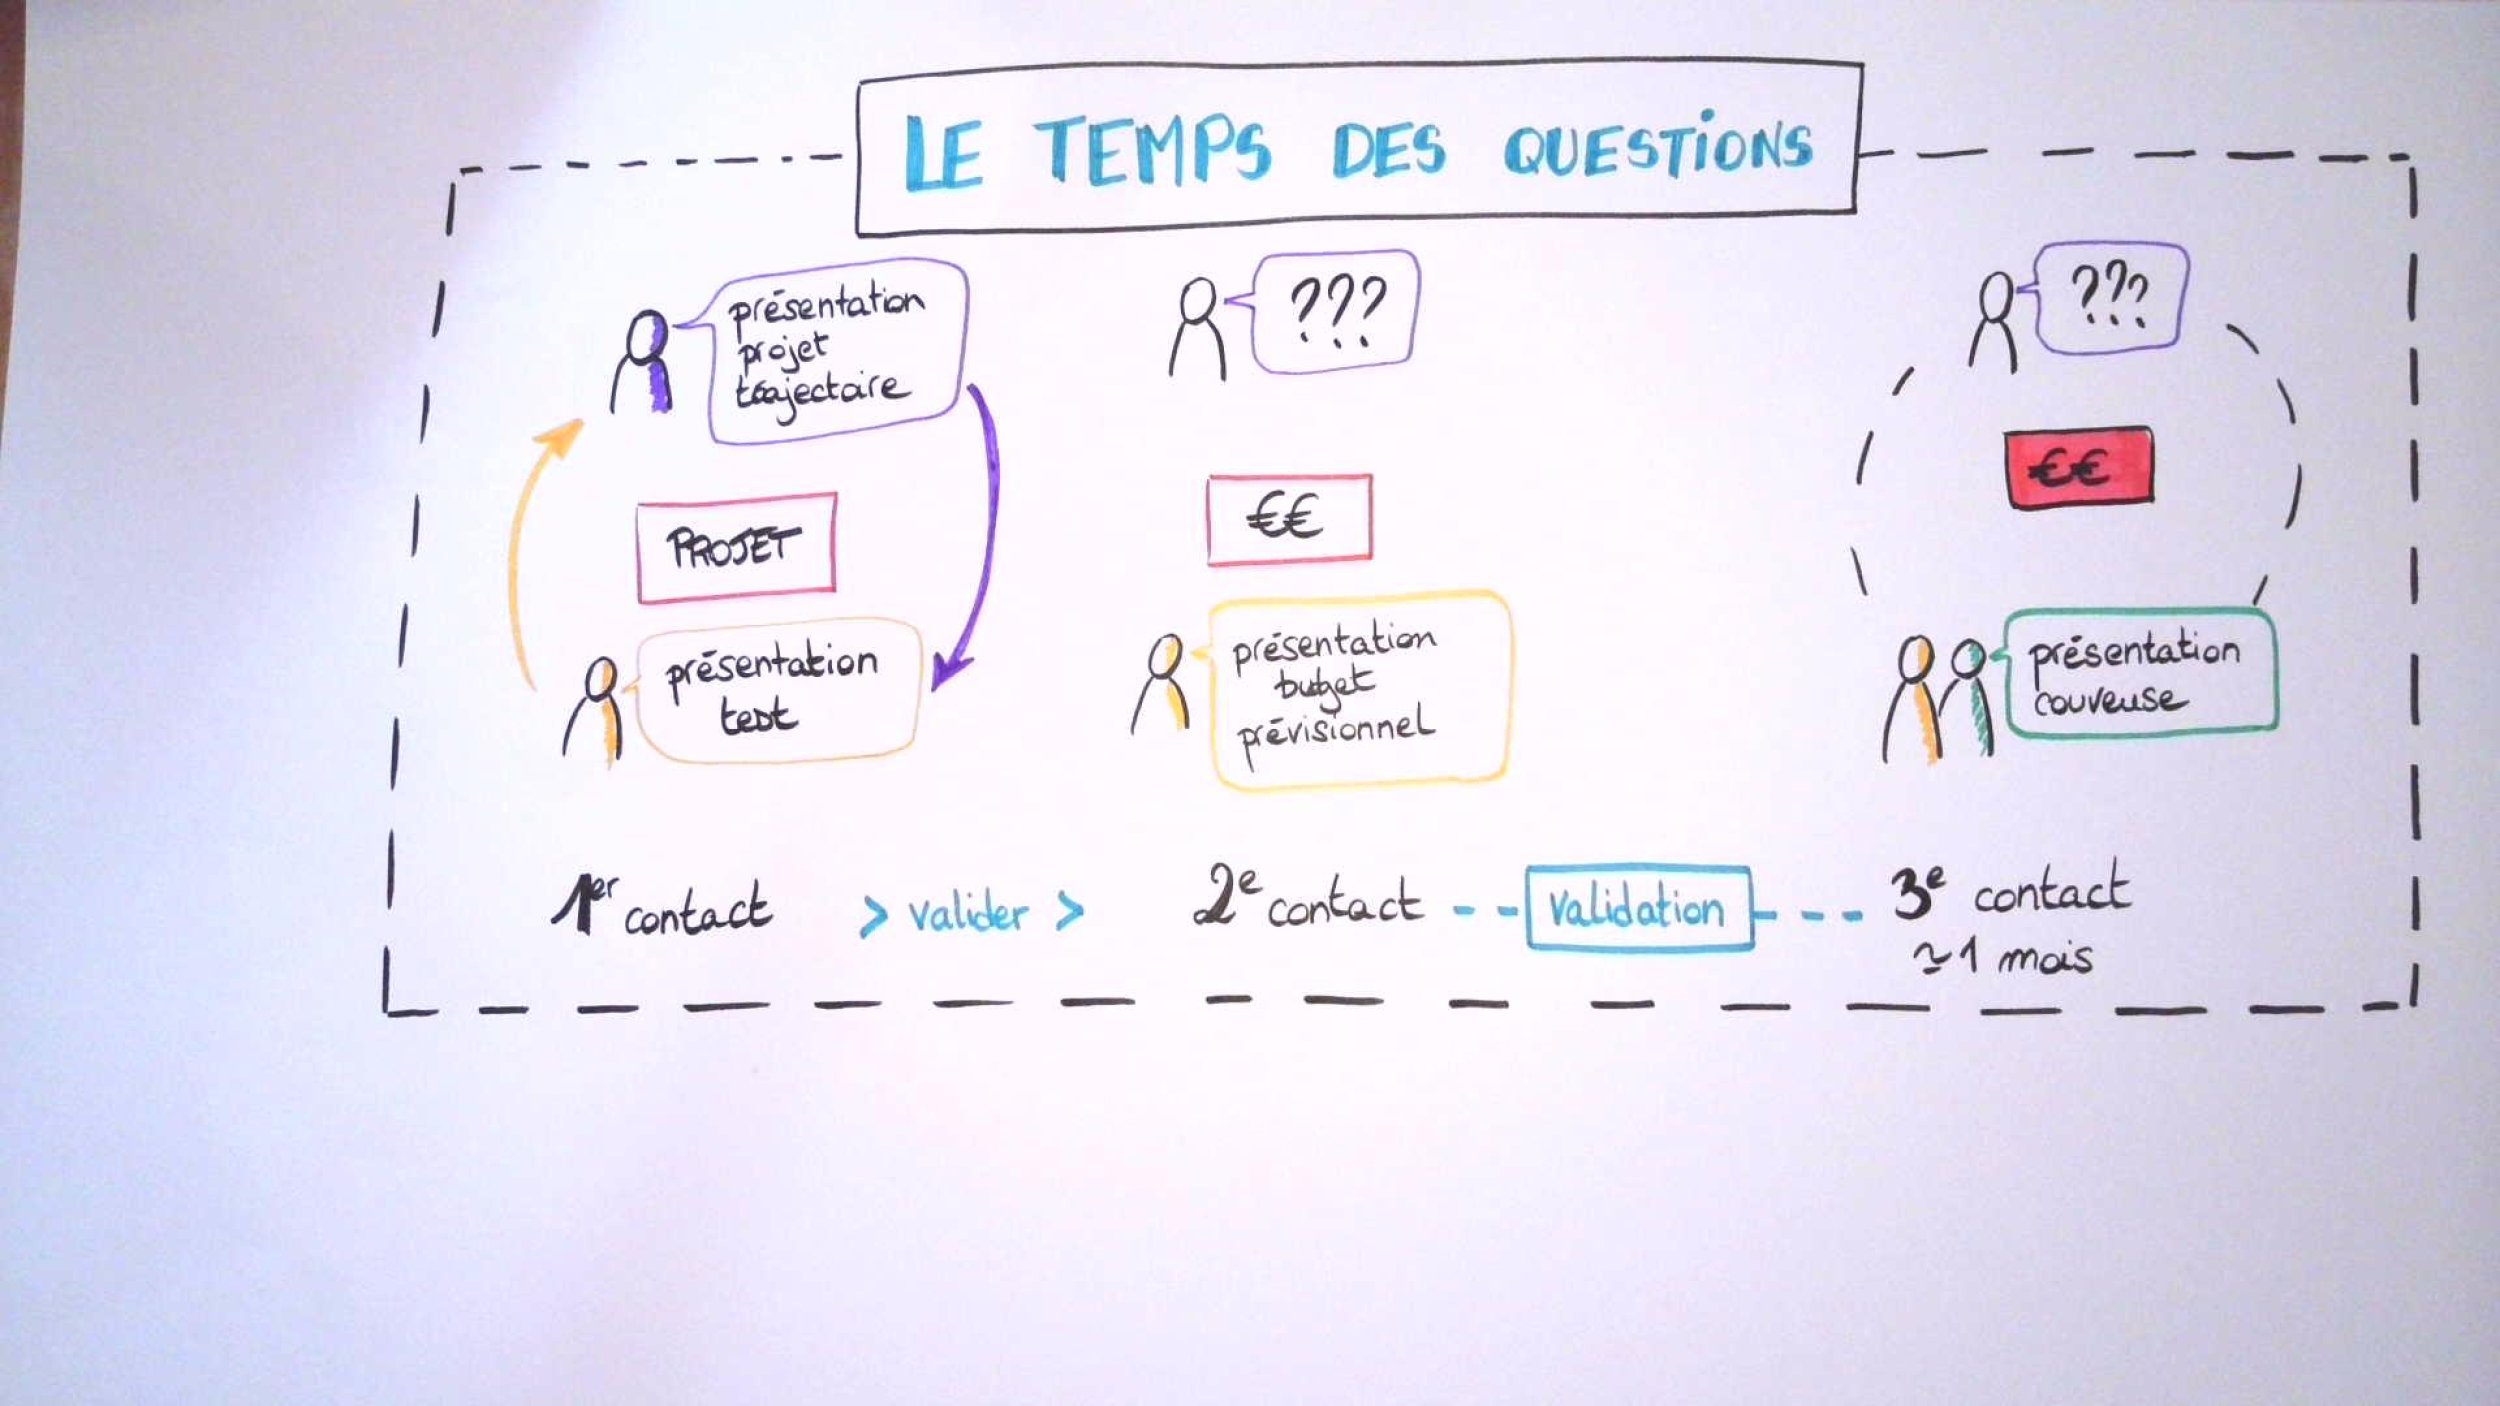 LE TEMPS DES QUESTIONS
présentation
projet
trajectoire
PROJET
présentation
test
1er contact
> valider >
???
€€
présentation
budget
prévisionnel
2e contact
validation
???
€€
présentation
couveuse
3e contact
≃1 mois